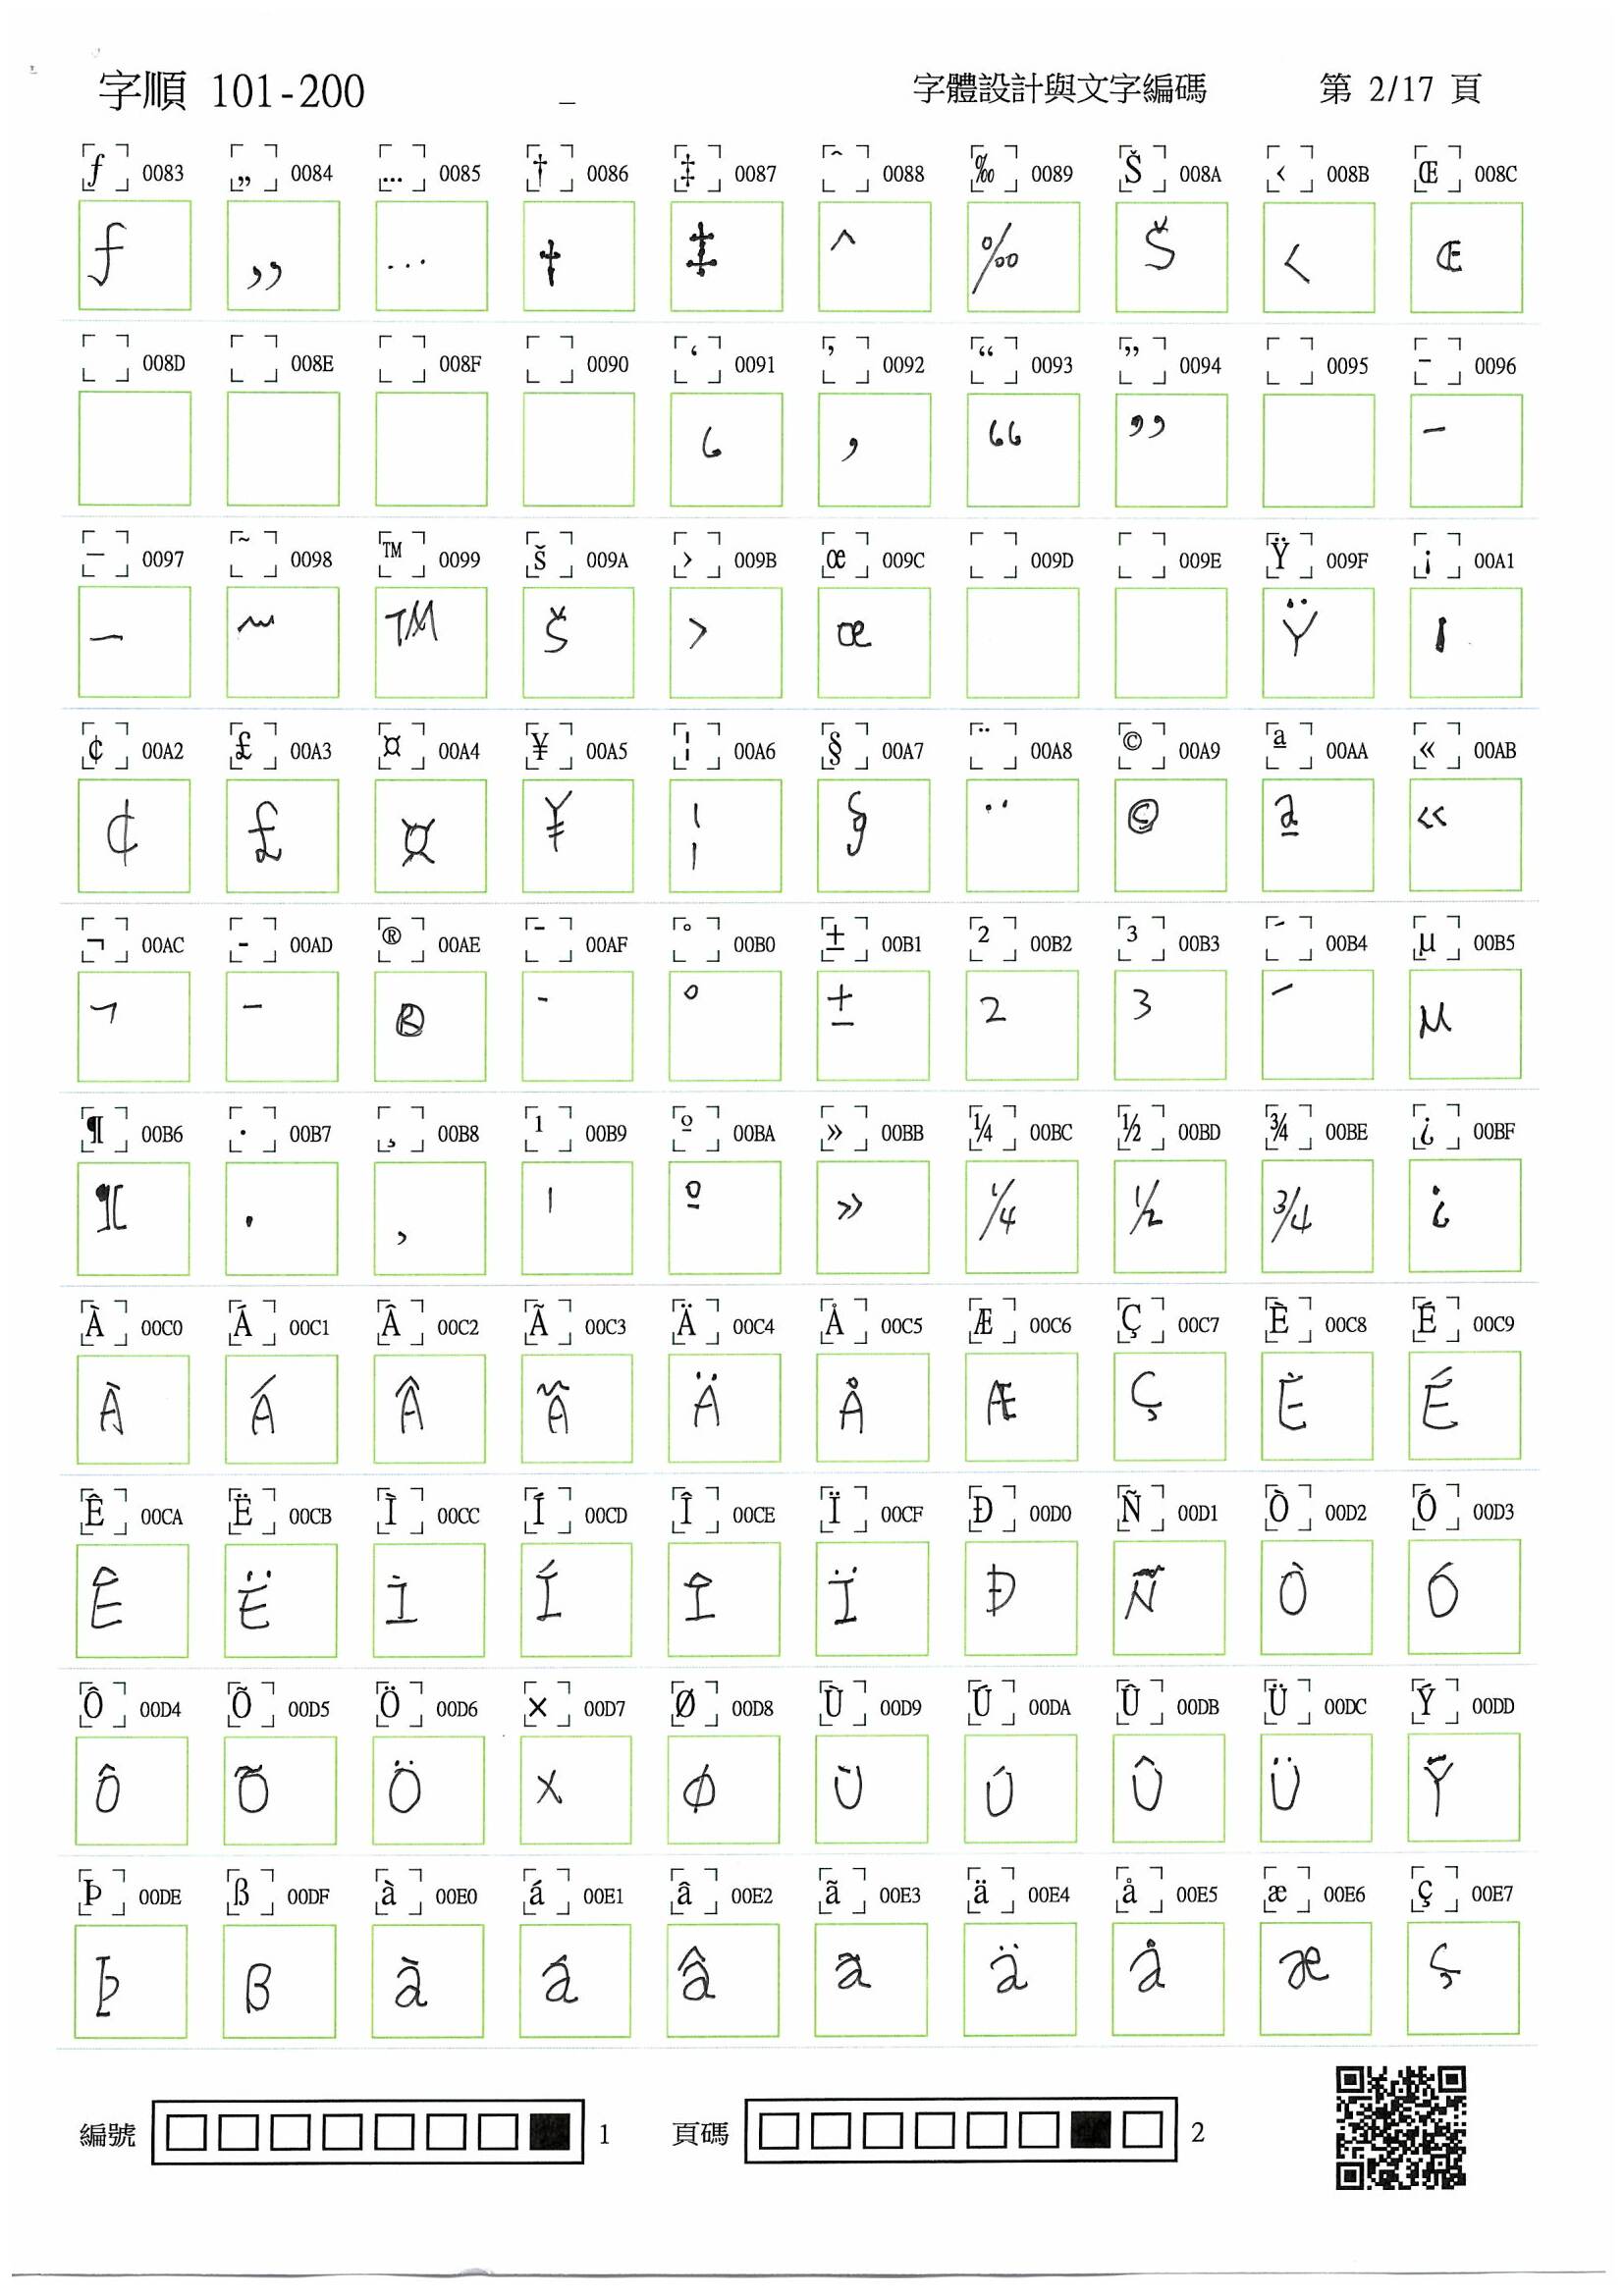 字順 101-200 _ 字體設計與文字編碼 第 2/17 頁
ƒ 0083 „ 0084 … 0085 † 0086 ‡ 0087 ˆ 0088 ‰ 0089 Š 008A ‹ 008B Œ 008C
ƒ „ … † ‡ ^ ‰ Š ‹ Œ
008D 008E 008F 0090 ‘ 0091 ’ 0092 “ 0093 ” 0094 0095 – 0096
‘ ’ “ ” –
— 0097 ˜ 0098 ™ 0099 š 009A › 009B œ 009C 009D 009E Ÿ 009F ¡ 00A1
— ˜ ™ š › œ Ÿ ¡
¢ 00A2 £ 00A3 ¤ 00A4 ¥ 00A5 ¦ 00A6 § 00A7 ¨ 00A8 © 00A9 ª 00AA « 00AB
¢ £ ¤ ¥ ¦ § ¨ © ª «
¬ 00AC - 00AD ® 00AE ¯ 00AF ° 00B0 ± 00B1 ² 00B2 ³ 00B3 ´ 00B4 µ 00B5
¬ - ® ¯ ° ± 2 3 ´ µ
¶ 00B6 · 00B7 ¸ 00B8 ¹ 00B9 º 00BA » 00BB ¼ 00BC ½ 00BD ¾ 00BE ¿ 00BF
¶ · ¸ ¹ º » ¼ ½ ¾ ¿
À 00C0 Á 00C1 Â 00C2 Ã 00C3 Ä 00C4 Å 00C5 Æ 00C6 Ç 00C7 È 00C8 É 00C9
À Á Â Ã Ä Å Æ Ç È É
Ê 00CA Ë 00CB Ì 00CC Í 00CD Î 00CE Ï 00CF Ð 00D0 Ñ 00D1 Ò 00D2 Ó 00D3
Ê Ë Ì Í Î Ï Ð Ñ Ò Ó
Ô 00D4 Õ 00D5 Ö 00D6 × 00D7 Ø 00D8 Ù 00D9 Ú 00DA Û 00DB Ü 00DC Ý 00DD
Ô Õ Ö × Ø Ù Ú Û Ü Ý
Þ 00DE ß 00DF à 00E0 á 00E1 â 00E2 ã 00E3 ä 00E4 å 00E5 æ 00E6 ç 00E7
Þ ß à á â ã ä å æ ç
編號 1 頁碼 2